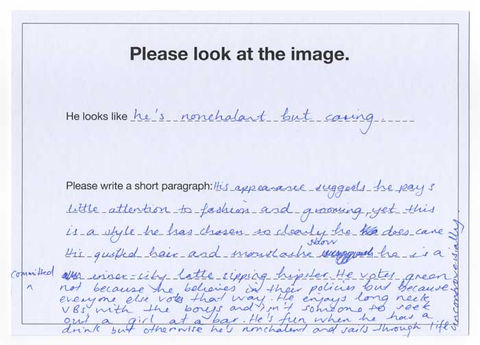 Please look at the image.
He looks like he's nonchalant but caring
Please write a short paragraph: His appearance suggests he pays
little attention to fashion and grooming, yet this
is a style he has chosen so clearly he does care
His quiffed hair and moustache show he is a
committed inner-city latte sipping hipster. He votes green
not because he believes in their policies but because
everyone else votes that way. He enjoys long neck
VBs with the boys and isn't someone to seek
out a girl at a bar. He's fun when he has a
drink but otherwise he's nonchalant and sails through life
uncontroversially